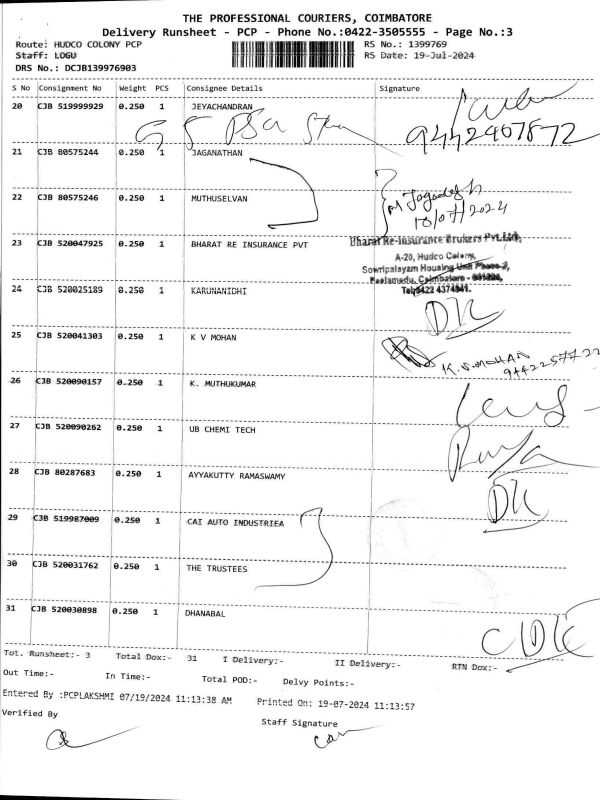 THE PROFESSIONAL COURIERS, COIMBATORE
Delivery Runsheet - PCP - Phone No.:0422-3505555 - Page No.:3
Route: HUDCO COLONY PCP RS No.: 1399769
Staff: LOGU RS Date: 19-Jul-2024
DRS No.: DCJB139976903
S No Consignment No Weight PCS Consignee Details Signature
20 CJB 519999929 0.250 1 JEYACHANDRAN
9442467872
21 CJB 80575244 0.250 1 JAGANATHAN
22 CJB 80575246 0.250 1 MUTHUSELVAN
M Jagadesh
18/07/2024
23 CJB 520047925 0.250 1 BHARAT RE INSURANCE PVT
Bharat Re-Insurance Brokers Pvt.Ltd.
A-20, Hudco Colony,
Sowripalayam Housing Unit Phase-2,
Peelamedu, Coimbatore -
Tel:0422 4374941.
24 CJB 520025189 0.250 1 KARUNANIDHI
DK
25 CJB 520041303 0.250 1 K V MOHAN
K.V.MOHAN
9442257722
26 CJB 520090157 0.250 1 K. MUTHUKUMAR
27 CJB 520090262 0.250 1 UB CHEMI TECH
28 CJB 80287683 0.250 1 AYYAKUTTY RAMASWAMY
DK
29 CJB 519987009 0.250 1 CAI AUTO INDUSTRIEA
30 CJB 520031762 0.250 1 THE TRUSTEES
31 CJB 520030898 0.250 1 DHANABAL
DK
Tot. Runsheet:- 3 Total Dox:- 31 I Delivery:- II Delivery:- RTN Dox:-
Out Time:- In Time:- Total POD:- Delvy Points:-
Entered By :PCPLAKSHMI 07/19/2024 11:13:38 AM Printed On: 19-07-2024 11:13:57
Verified By Staff Signature